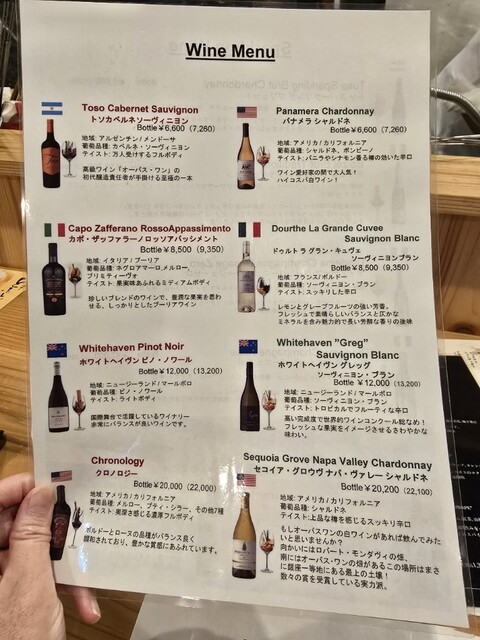 Wine Menu
Toso Cabernet Sauvignon
トソカベルネソーヴィニヨン
Bottle￥6,600 (7,260)
地域: アルゼンチン/メンドーサ
葡萄品種: カベルネ・ソーヴィニヨン
テイスト: 万人受けするフルボディ
高級ワイン「オーパス・ワン」の
初代醸造責任者が手掛ける至極の一本
Panamera Chardonnay
パナメラ シャルドネ
Bottle￥6,600 (7,260)
地域: アメリカ/カリフォルニア
葡萄品種: シャルドネ、ボンビーノ
テイスト: バニラやシナモン香る樽の効いた辛口
ワイン愛好家の間で大人気！
ハイコスパ白ワイン！
Capo Zafferano RossoAppassimento
カポ・ザッファラーノロッソアパッシメント
Bottle￥8,500 (9,350)
地域: イタリア/プーリア
葡萄品種: ネグロアマーロ,メルロー,
プリミティーヴォ
テイスト: 果実味あふれるミディアムボディ
珍しいブレンドのワインで、豊潤な果実を思わ
せる、しっかりとしたプーリアワイン
Dourthe La Grande Cuvee
Sauvignon Blanc
ドゥルト ラ グラン・キュヴェ
ソーヴィニヨンブラン
Bottle￥8,500 (9,350)
地域: フランス/ボルドー
葡萄品種: ソーヴィニヨン・ブラン
テイスト: スッキリした辛口
レモンとグレープフルーツの強い芳香。
フレッシュで素晴らしいバランスと広かな
ミネラルを含み魅力的で長い芳醇な香りの後味
Whitehaven Pinot Noir
ホワイトヘイヴン ピノ・ノワール
Bottle￥12,000 (13,200)
地域: ニュージーランド/マールボロ
葡萄品種: ピノ・ノワール
テイスト: ライトボディ
国際舞台で活躍しているワイナリー
非常にバランスが良いワインです。
Whitehaven ”Greg”
Sauvignon Blanc
ホワイトヘイヴン グレッグ
ソーヴィニヨン・ブラン
Bottle ￥12,000 (13,200)
地域: ニュージーランド/マールボロ
葡萄品種: ソーヴィニヨン・ブラン
テイスト: トロピカルでフルーティな辛口
高い完成度で世界的ワインコンクール総なめ！
フレッシュな果実をイメージさせるさわやかな
味わい。
Chronology
クロノロジー
Bottle￥20,000 (22,000)
地域: アメリカ/カリフォルニア
葡萄品種: メルロー、プティ・シラー、その他7種
テイスト: 果実さ感じる濃厚フルボディ
ボルドーとローヌの品種がバランス良く
調和されており、豊かな質感にあふれています。
Sequoia Grove Napa Valley Chardonnay
セコイア・グロウヴ ナパ・ヴァレー シャルドネ
Bottle￥20,200 (22,100)
地域: アメリカ/カリフォルニア
葡萄品種: シャルドネ
テイスト: 上品な樽を感じるスッキリ辛口
もしオーパスワンの白ワインがあれば飲んでみた
いと思いませんか？
向かいにはロバート・モンダヴィの畑、
南にはオーパス・ワンの畑がある この場所はまさ
に銀座一等地にある最上の土壌！
数々の賞を受賞している実力派。